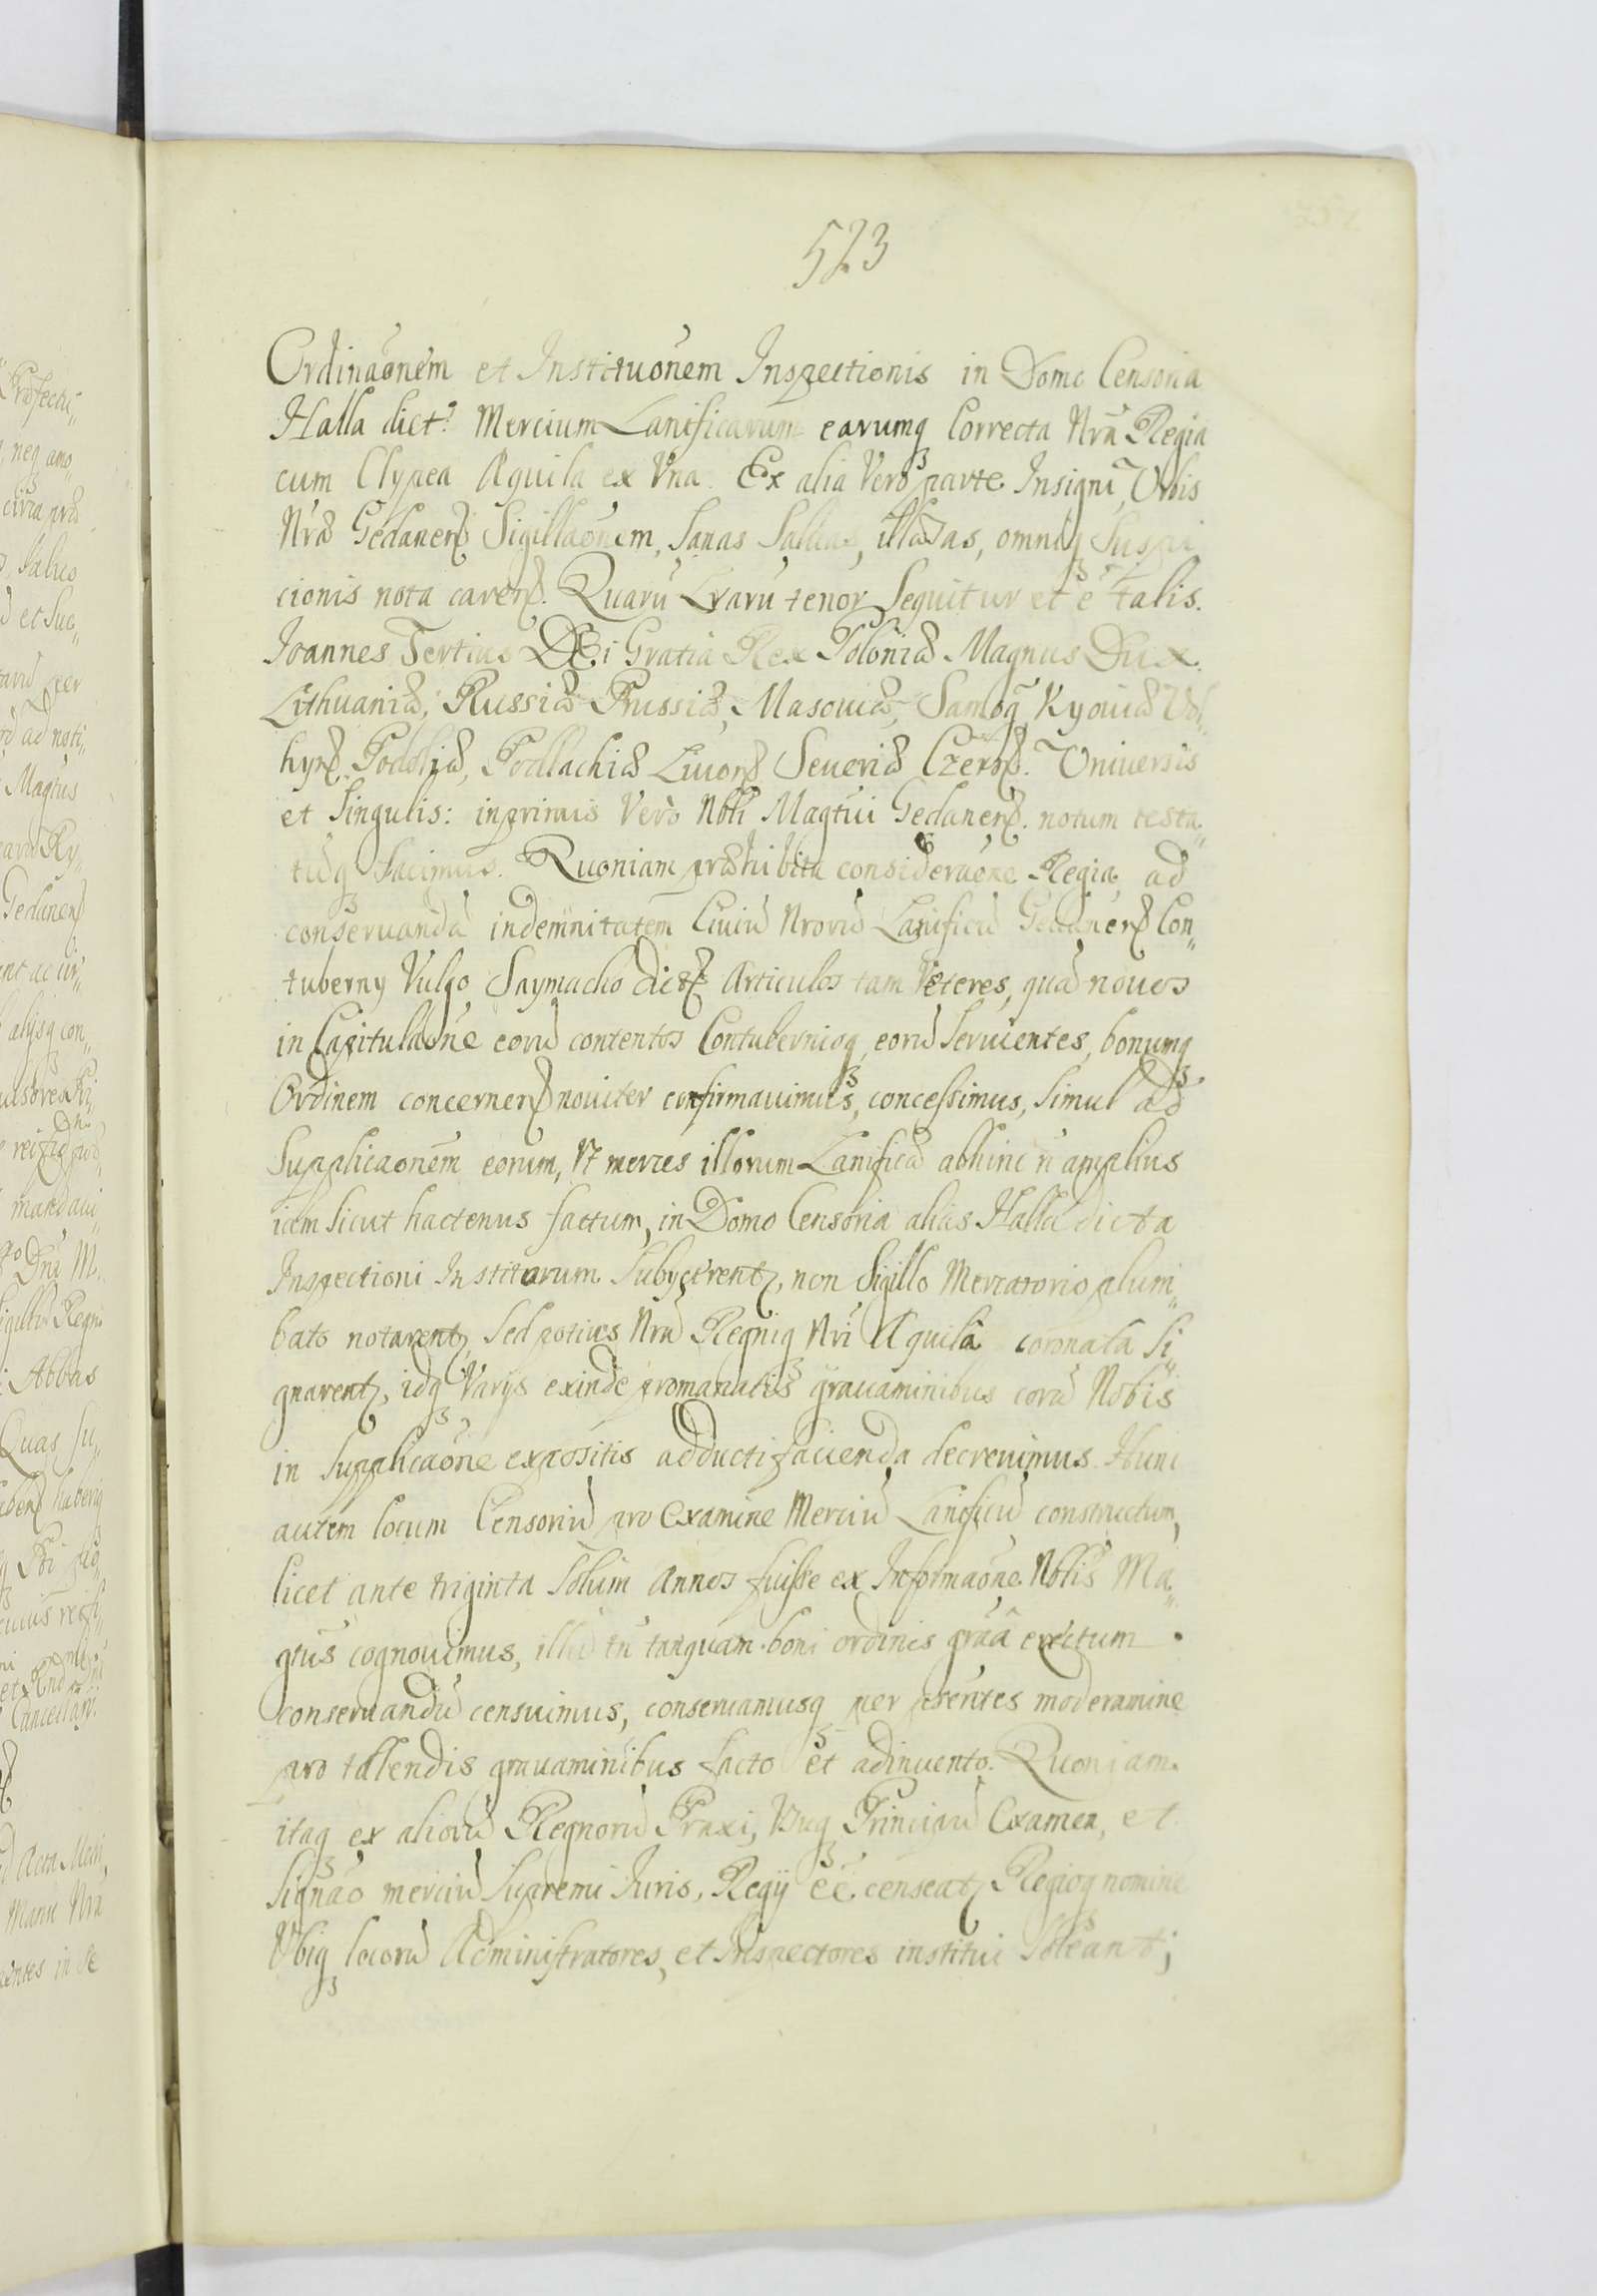 523
Ordinaõnem et Instituõnem Inspectionis in Domo Censoria
Halla dict: Mercium Lanificarum earumq Correcta Nrã Regia
cum Clypea Aquila ex Vna. Ex alia Vero parte Insigni Urbis
Nræ Gedanens Sigillaõnem, Sanas Saluas, illæsas, omniq Suspi
cionis nota carens. Quarũ Lrarũ tenor Sequitur et ẽ talis.
Joannes Tertius DEi Gratia Rex Poloniæ Magnus Dux
Lithuaniæ, Russiæ Prussiæ, Masouiæ, Samog̃ Kyouiæ Vol„
hyns Podoliæ, Podlachiæ Liuons Seueriæ Czerns. Vniuersis
et Singulis: inprimis Vero Nobli Magtui Gedanens. notum testa„
tũq facimus. Quoniam præhibita consideraõne Regia, ad
conseruandã indemnitatem Ciuiũ Nrorũ Lanificũ Gedanens Con„
tuberny Vulgo Saymacho dict Articulos tam Veteres, quã nouos
in Capitulaõne eorũ contentos Contubernioq eorũ Seruientes, bonumq
Ordinem concernens nouiter confirmauimus, concessimus, Simul ad
Supplicaõnem eorum, Vt merces illorum Lanificæ abhinc ñ amplius
iam Sicut hactenus factum, in Domo Censoria alias Halla dicta
Inspectioni Institorum Subycerent, non Sigillo Mercatorio plum„
bato notarent, Sed potius Nrã Regniq Nri Aquila coronata Si„
gnarent, idq Varys exinde promanatis grauaminibus eorũ Nobis
in Supplicaõne expositis adducti facienda decreuimus. Hunc
autem locum Censoriũ pro Examine Merciũ Lanificũ constructum,
licet ante triginta Solum Annos fuisse ex Informaõne Nblis Ma„
gtus cognouimus, illũ tñ tanquam boni ordinis graâ erectum
conseruandũ censuimus, conseruamusq per psentes moderamine
pro tollendis grauaminibus facto et adinuento. Quoniam
itaq ex aliorũ Regnorũ Praxi, Vsuq Examen, et
Signão merciũ Supremi Iuris, Regy eẽ censeat, Regioq nomine
Vbiq locorũ Administratores, et Inspectores institui Soleant;